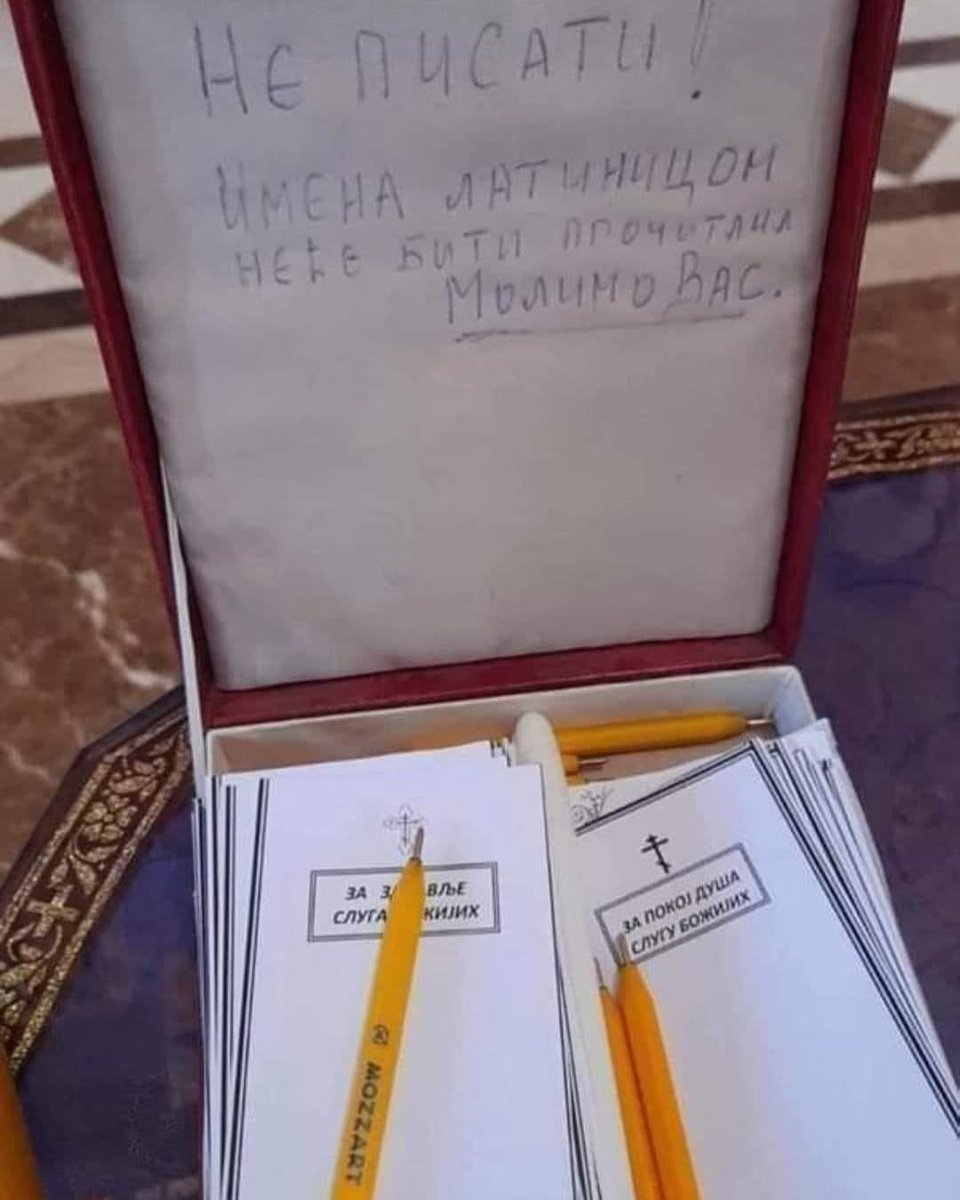 НЕ ПИСАТИ!
ИМЕНА ЛАТИНИЦОМ
НЕЋЕ БИТИ ПРОЧИТАНА
МОЛИМО ВАС.
ЗА ЗДРАВЉЕ
СЛУГА БОЖИЈИХ
ЗА ПОКОЈ ДУША
СЛУГУ БОЖИЈИХ
MOZZART